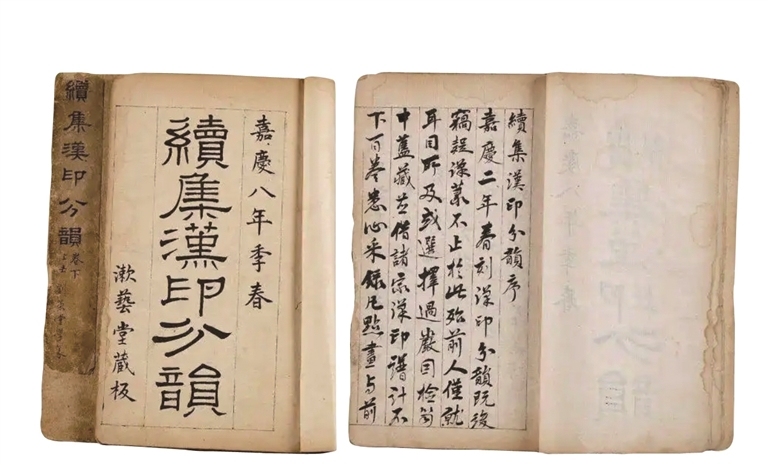 續集漢印分韻
卷下
嘉慶八年季春
續集漢印分韻
漱藝堂藏板
續集漢印分韻序
嘉慶二年春刻漢印分韻既後
竊疑謬篆不止於此殆前人僅就
耳目所及或選擇過嚴因檢笥
中舊藏並借諸家漢印譜計不
下百卷悉心采錄凡點畫與前